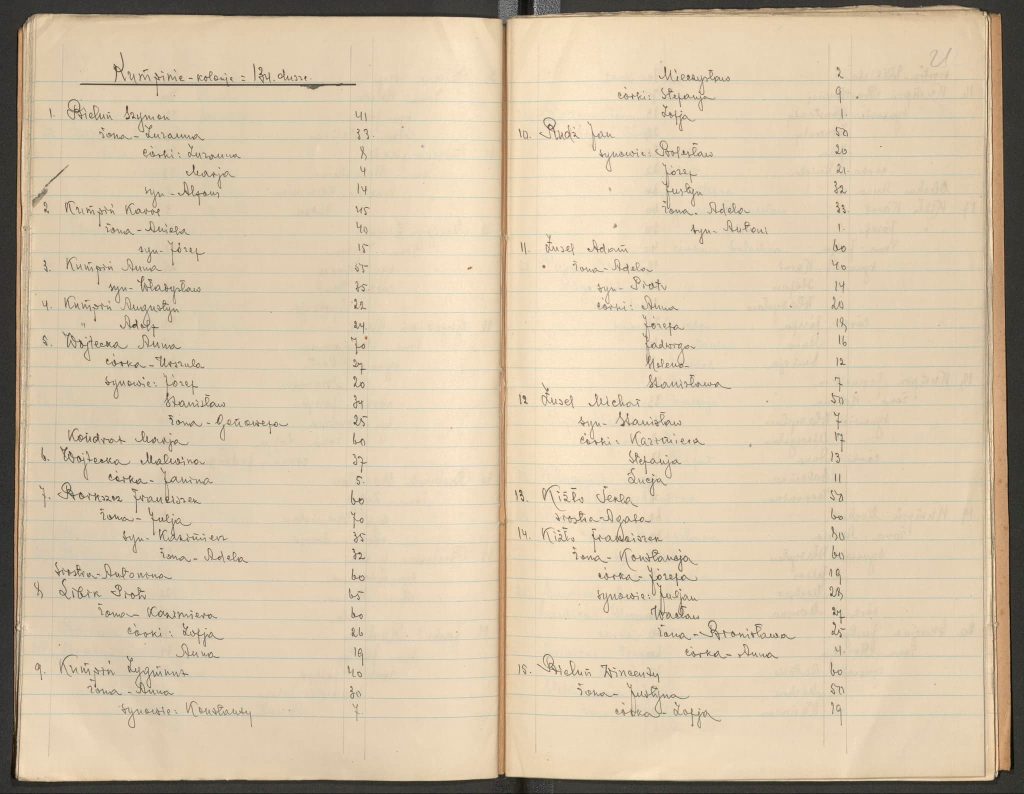 Kumpinie - kolonje = 134 dusze.
1. Bieluń Szymon 41
żona - Zuzanna 33
córki: Zuzanna 8
Marja 4
syn - Alfons 14
2 Kumpiń Karol 45
żona - Aniela 40
syn - Józef 15
3. Kumpiń Anna 55
syn - Władysław 35
4. Kumpiń Augustyn 22
" Adolf 24
5. Wojtecka Anna 70
córka - Urszula 27
synowie: Józef 20
Stanisław 34
żona - Genowefa 25
Kondrat Marja 60
6. Wojtecka Malwina 37
córka - Janina 5
7. Borkszcz Franciszek 60
żona - Julja 70
syn - Kazimierz 35
żona - Adela 32
siostra - Antonina 60
8 Libik Piotr 65
żona - Kazimiera 60
córki: Zofja 26
Anna 19
9. Kumpiń Zygmunt 40
żona - Anna 30
synowie: Konstanty 7
21
Mieczysław 2
córki: Stefanja 9
Zofja 1
10. Rudź Jan 50
synowie: Bolesław 20
Józef 21
Justyn 32
żona - Adela 33
syn - Antoni 1
11. Żusel Adam 60
żona - Adela 40
syn - Piotr 14
córki: Anna 20
Józefa 18
Jadwiga 16
Helena 12
Stanisława 7
12 Żusel Michał 50
syn - Stanisław 7
córki: Kazimiera 17
Stefanja 13
Łucja 11
13. Kizło Tekla 50
siostra - Agata 60
14. Kizło Franciszek 80
żona - Konstancja 60
córka - Józefa 19
synowie: Juljan 28
Wacław 27
żona - Bronisława 25
córka - Anna 4
15. Bieluń Wincenty 60
żona - Justyna 50
córka - Zofja 19